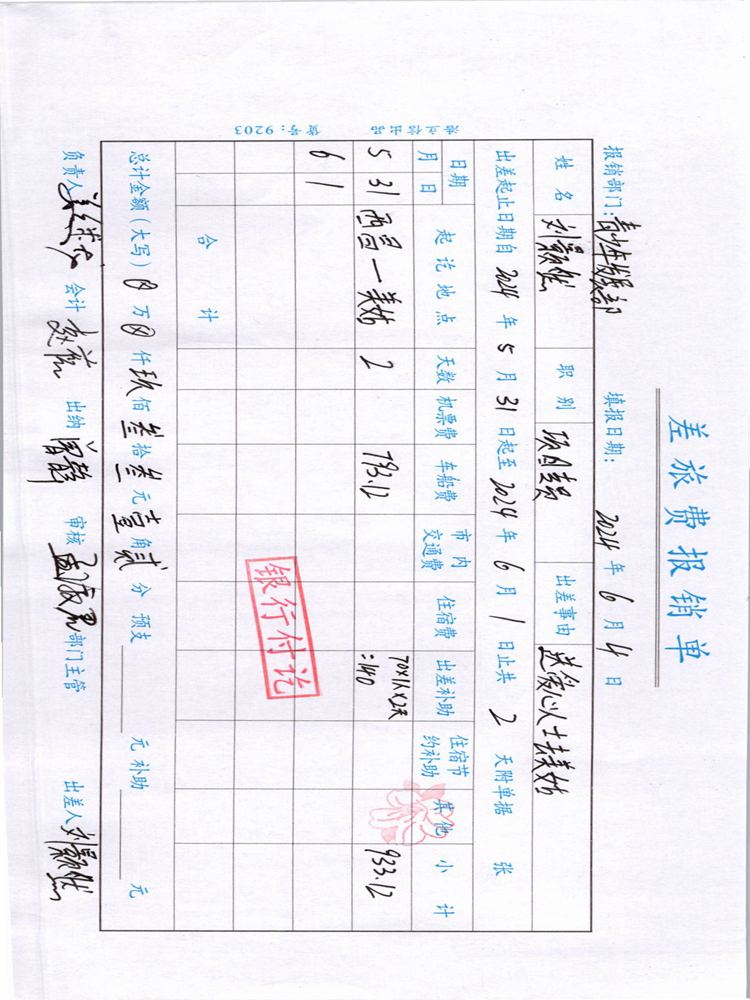 差旅费报销单
报销部门：青少年发展部 填报日期： 2024 年 6 月 4 日
姓名 刘颢然 职别 项目专员 出差事由 送爱心人士去美姑
出差起止日期自 2024 年 5 月 31 日起至 2024 年 6 月 1 日止共 2 天附单据 张
日期 起讫地点 天数 机票费 车船费 市内交通费 住宿费 出差补助 住宿节约补助 其他 小计
月 日
5 31 西昌—美姑 2 793.12 70×1人×2天=140 933.12
6 1
银行付讫
合计
总计金额（大写） 0 万 0 仟 玖 佰 叁 拾 叁 元 壹 角 贰 分 预支 元 补助 元
负责人 会计 出纳 曾静 审核 部门主管 出差人 刘颢然
货号：9203